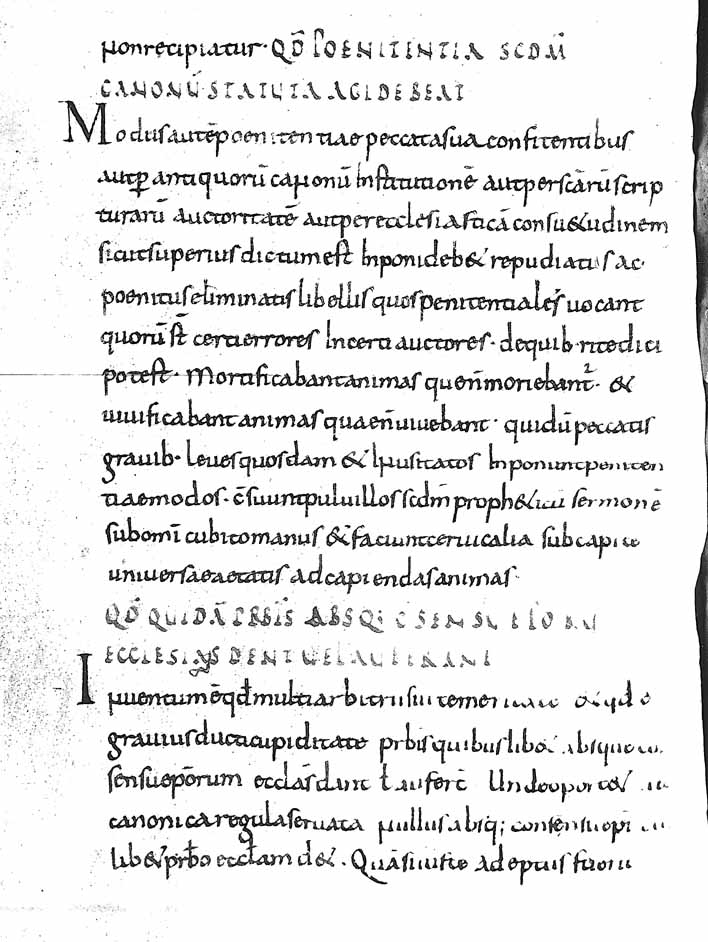 non recipiatur · QD̄ POENITENTIA SCDM̄
CANONŪ STATUTA AGI DEBEAT
Modus autē poenitentiae peccata sua confitentibus
aut ꝑ antiquorū canonū Institutionē aut per scārū scrip
turarū auctoritatē aut per ecclesiasticā consu&udinem
sicut superius dictum est Inponi deb& repudiatis ac
poenitus eliminatis libellis quos penitentiales uocant
quorū st̄ certi errores Incerti auctores · de quib· rite dici
potest · Mortificabant animas que n̄ moriebant̄ · &
uiuificabant animas quae n̄ uiuebant · qui dū peccatis
grauib· leues quosdam & Inusitatos Inponunt peniten
tiae modos · c̄suunt puluillos scdm̄ proph&icū sermonē
sub omī cubito manus & faciunt ceruicalia sub capite
uniuersae aetatis ad capiendas animas ·
QD̄ QUIDĀ PRBĪS ABSQ; CONSENSU EPORŪ
ECCLESIAS DENT UEL AUFERANT
Inuentum ē qd̄ multi arbitrii sui temeritate &qd̄ e
grauius ducti cupiditate prbīs quibuslib& absque
sensu eṕorum ecclās dant ł aufert̄ Unde oport& ut
canonica regula seruata nullus absq; consensu epi
lib& prb̄o ecclam d& · Quā si iuste adeptus fuerit